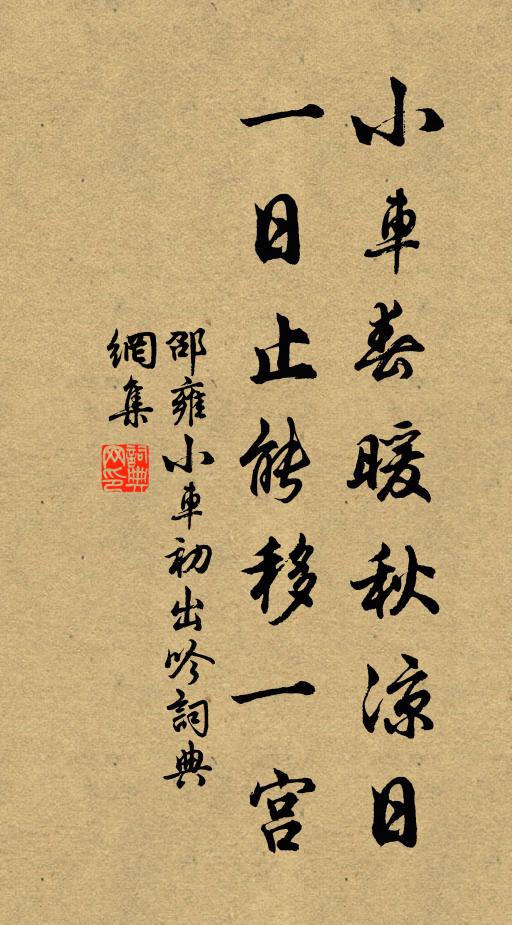 小車春暖秋涼日
一日止能移一宫
邵雍小車初出吟詞典
網集
詞典网印